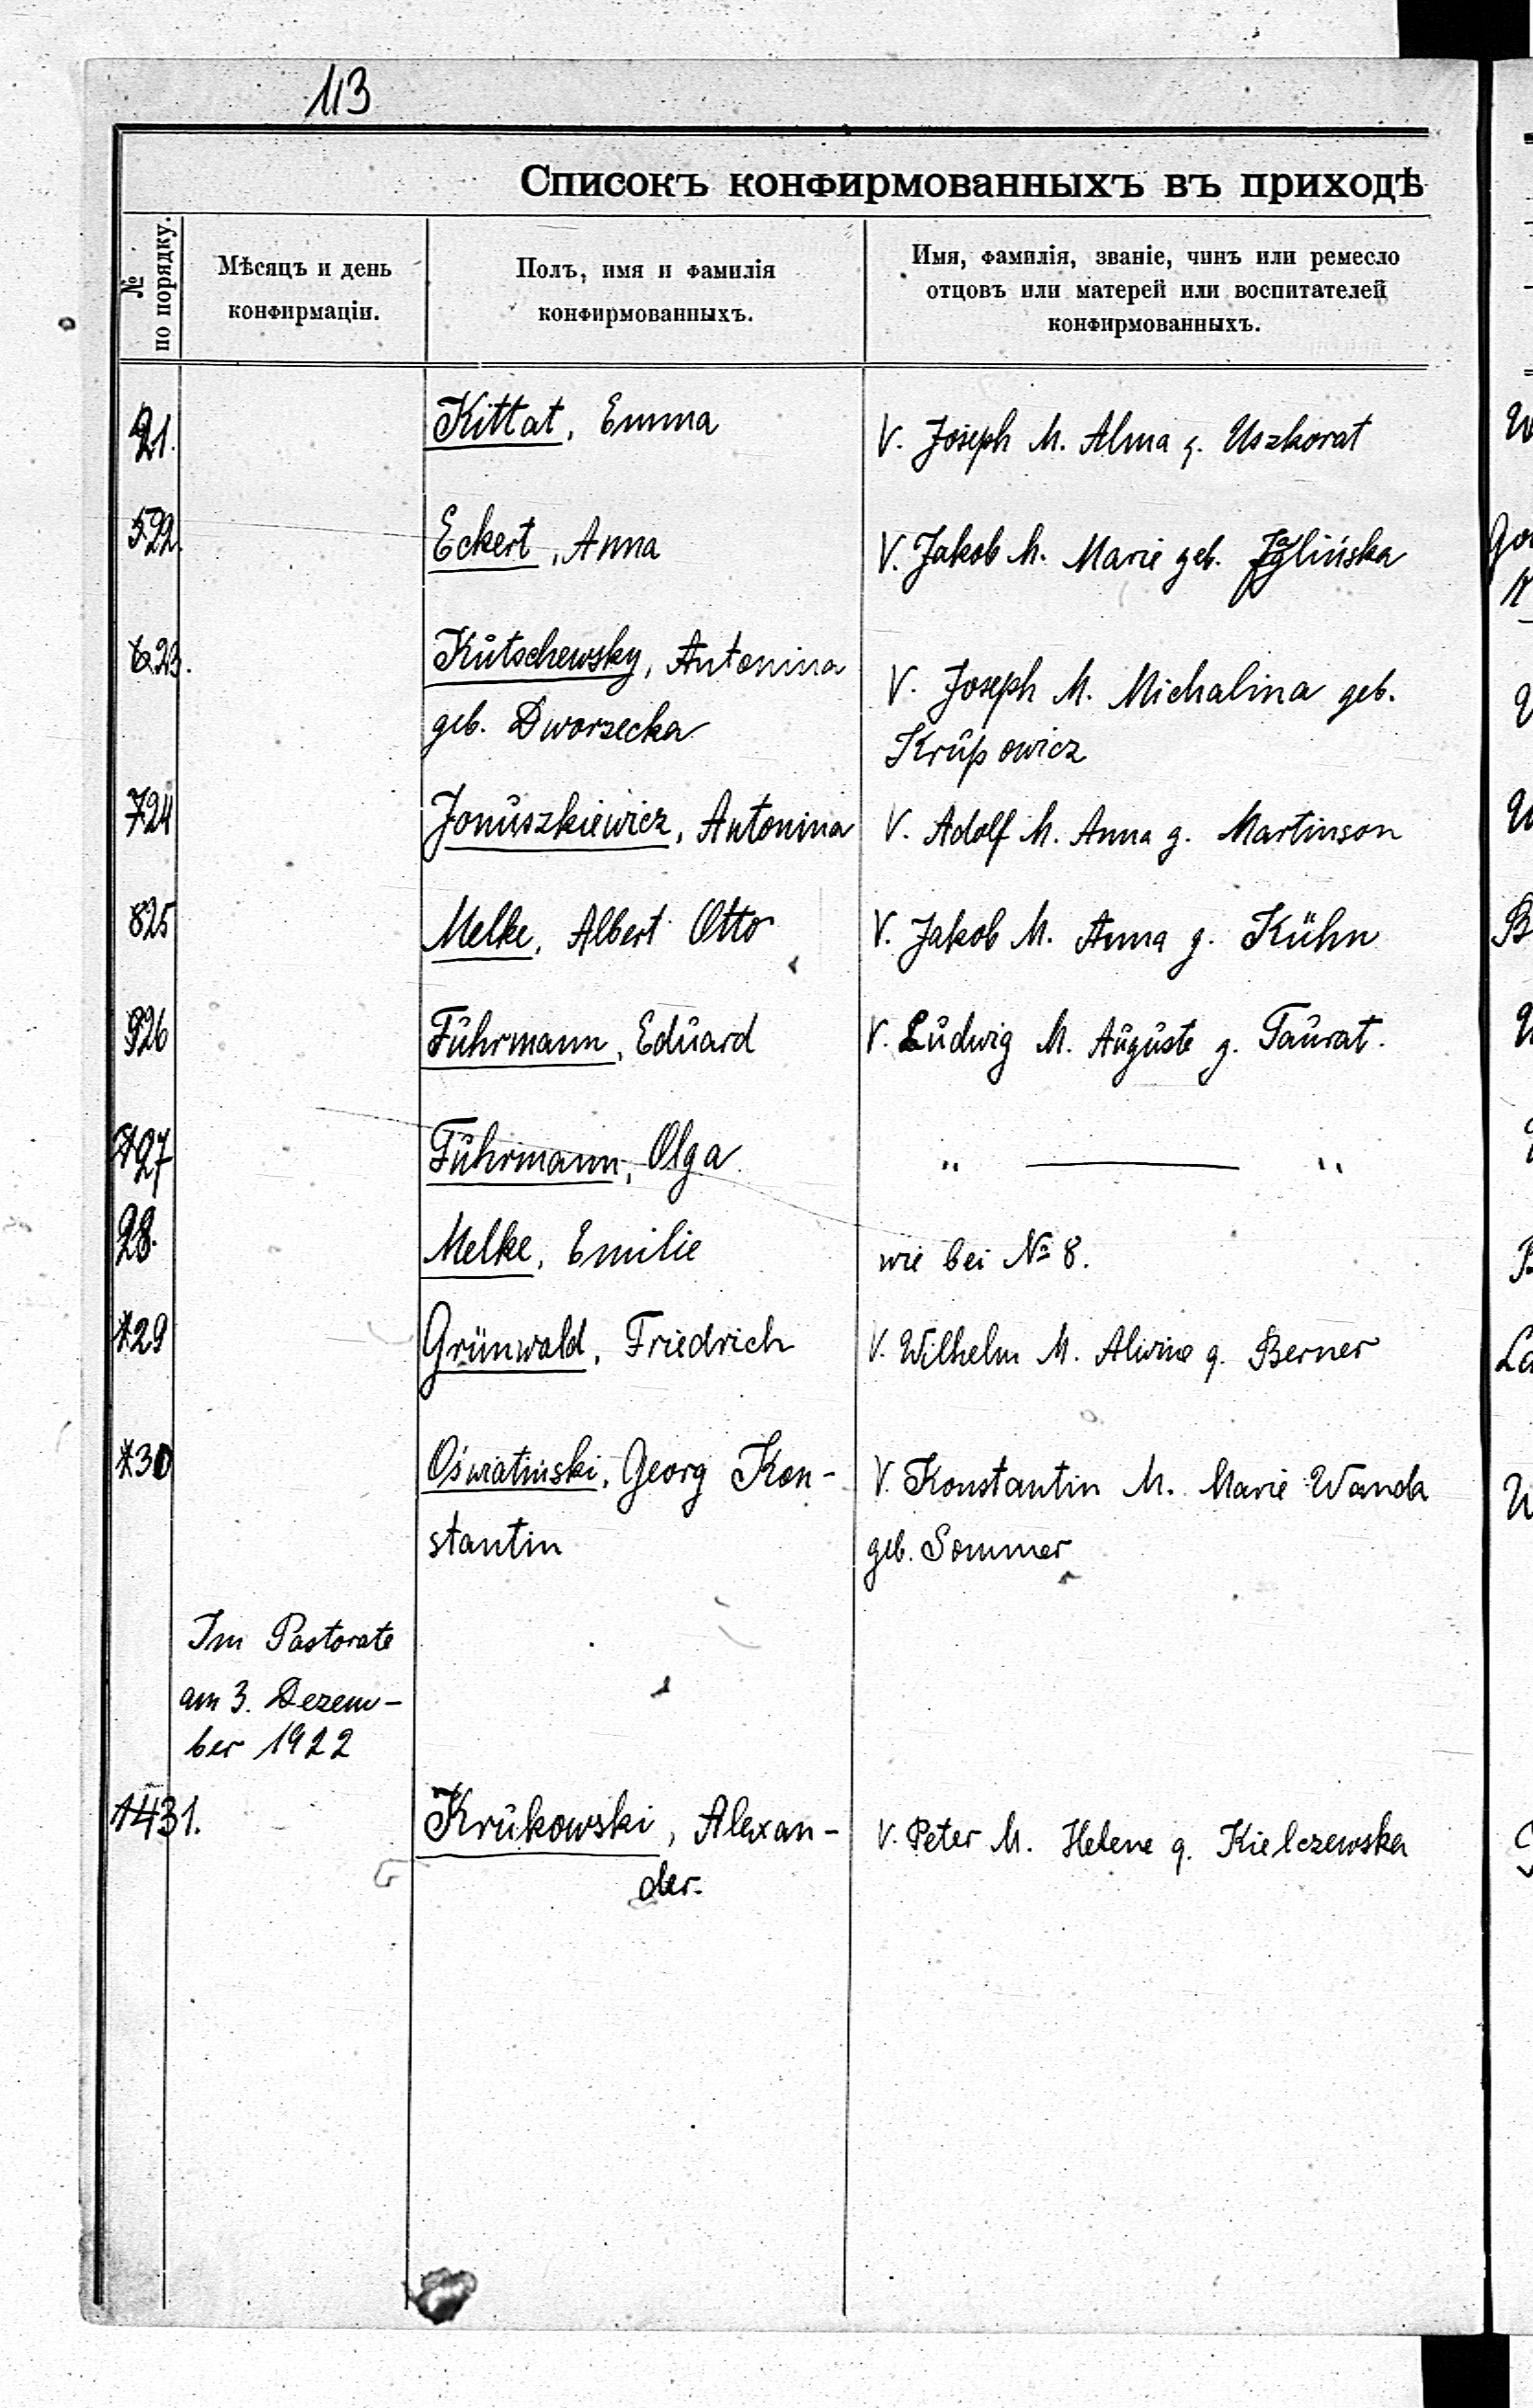 113
Списокъ конфирмованныхъ въ приходѣ
№ по порядку.
Мѣсяцъ и день
конфирмаціи.
Полъ, имя и фамилія
конфирмованныхъ.
Имя, фамилія, званіе, чинъ или ремесло
отцовъ или матерей или воспитателей
конфирмованныхъ.
21. Kittat, Emma V. Joseph M. Alma g. Uszkorat
22. Eckert, Anna V. Jakob M. Marie geb.
23. Kutschewsky, Antonina V. Joseph M. Michalina geb.
geb. Dworzecka Krupowicz
24 Jonuszkiewicz, Antonina V. Adolf M. Anna g. Martinson
25 Melke, Albert Otto V. Jakob M. Anna g. Kühn
26 Fuhrmann, Eduard V. Ludwig M. Auguste g. Taurat.
27 Fuhrmann, Olga " — "
28. Melke, Emilie wie bei № 8.
29 Grünwald, Friedrich V. Wilhelm M. Alwine g. Berner
30 Oświatinski, Georg Kon- V. Konstantin M. Marie Wanda
stantin geb. Sommer
Im Pastorate
am 3. Dezem-
ber 1922
31. Krukowski, Alexan- V. Peter M. Helene g. Kielczewska
der.